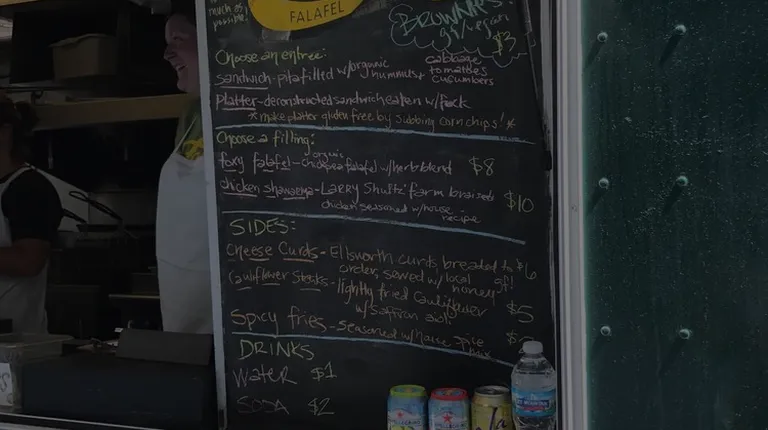 much as
possible!
FALAFEL
BROWNIES
gf/vegan
$3
Choose an entree:
sandwich-pita filled w/organic hummus+
cabbage
tomatoes
cucumbers
platter-deconstructed sandwich eaten w/fork
*make platter gluten free by subbing corn chips!*
Choose a filling:
foxy falafel-organic chickpea falafel w/herb blend $8
chicken shawarma-Larry Shultz farm braised $10
chicken seasoned w/house
recipe
SIDES:
Cheese Curds-Ellsworth curds breaded to $6
order, served w/local honey gf!
Cauliflower Steaks-lightly fried cauliflower $5
w/saffron aioli
Spicy fries-seasoned w/house spice
DRINKS
WATER $1
SODA $2